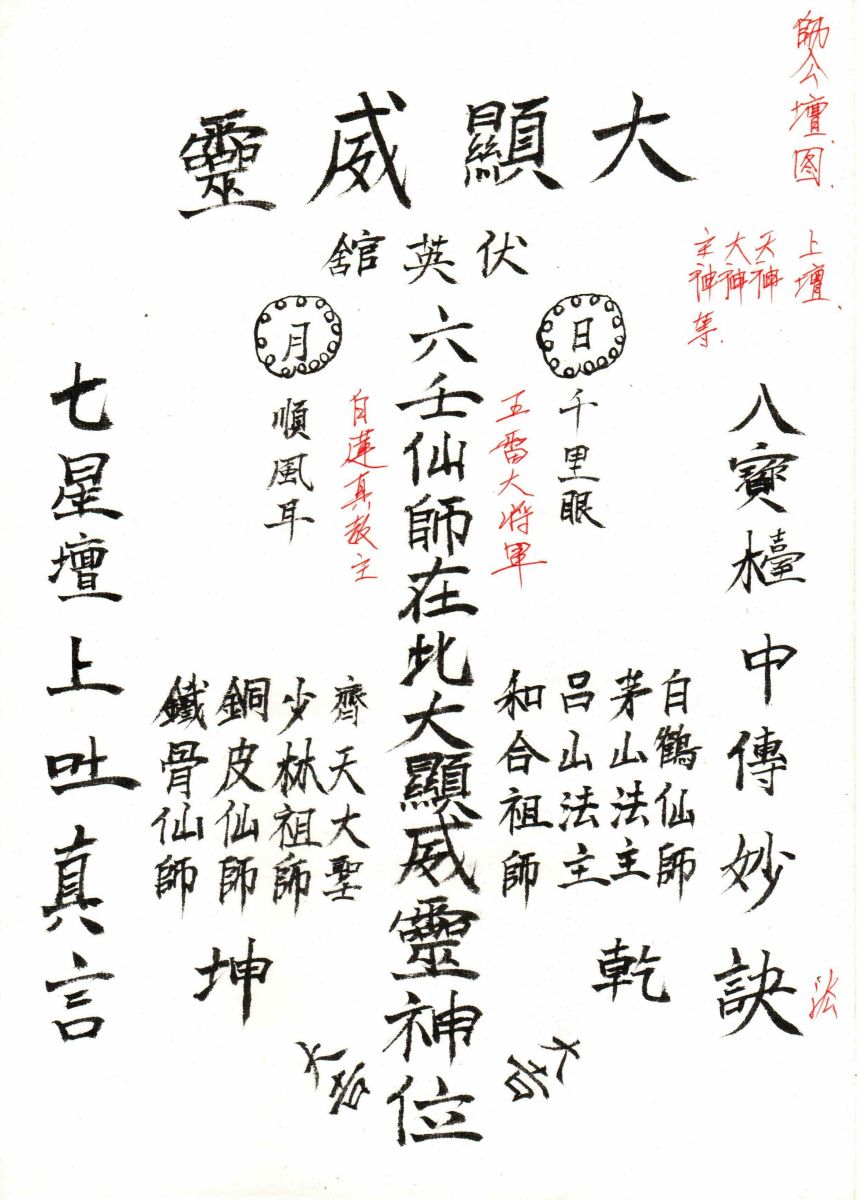 師公壇图
上壇
天神
大神
主神等
大顯威靈
伏英館
日
月
八寶檯中傳妙訣
法
千里眼
五雷大将軍
六壬仙師在此大顯威靈神位
白蓮真教主
順風耳
七星壇上吐真言
白鶴仙師
茅山法主
呂山法主
和合祖師
齊天大聖
少林祖師
銅皮仙師
鐵骨仙師
乾
坤
大吉